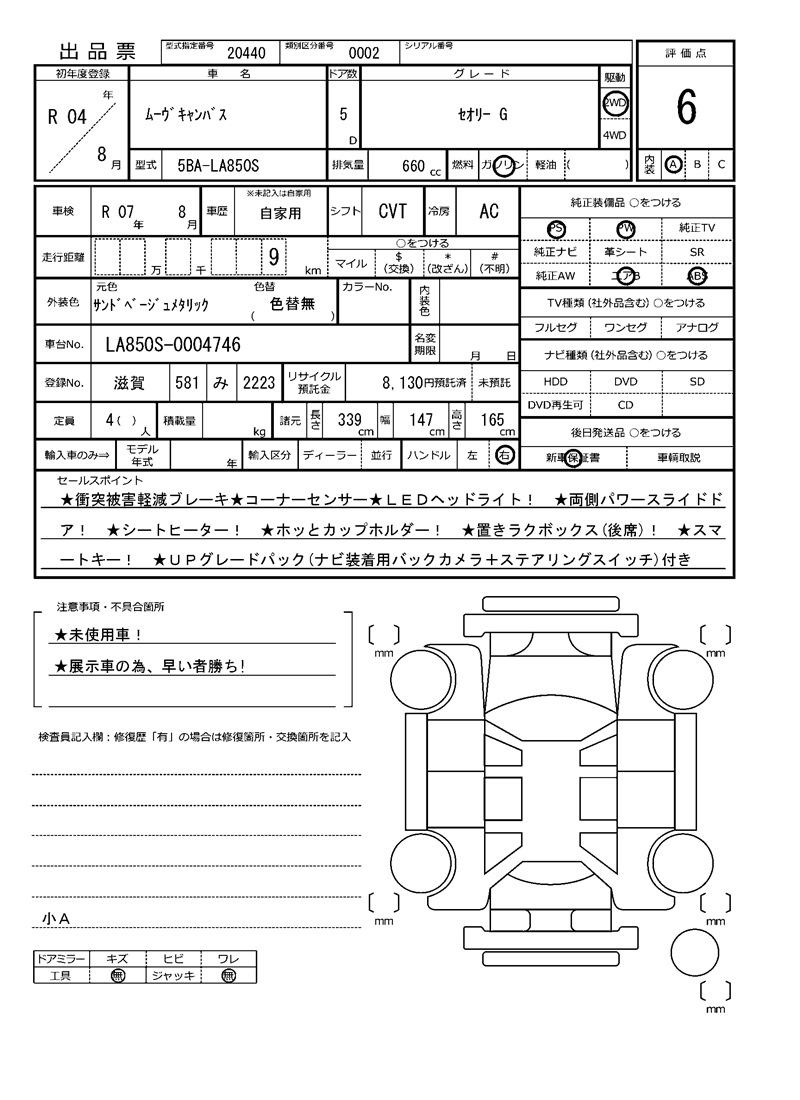 出品票 型式指定番号 20440 類別区分番号 0002 シリアル番号
評価点
初年度登録 車名 ドア数 グレード 駆動
R 04 年 8 月 ﾑｰｳﾞｷｬﾝﾊﾞｽ 5 D ｾｵﾘｰ G 2WD 4WD
6
型式 5BA-LA850S 排気量 660 cc 燃料 ガソリン 軽油 ( )
内装 A B C
車検 R 07 年 8 月 車歴 ※未記入は自家用 自家用 シフト CVT 冷房 AC
純正装備品 ○をつける
PS PW 純正TV
純正ナビ 革シート SR
純正AW エアB ABS
走行距離 万 千 9 km
○をつける
マイル $(交換) *(改ざん) #(不明)
外装色 元色 ｻﾝﾄﾞﾍﾞｰｼﾞｭﾒﾀﾘｯｸ 色替 ( 色替無 ) カラーNo. 内装色
TV種類 (社外品含む) ○をつける
フルセグ ワンセグ アナログ
車台No. LA850S-0004746 名変期限 月 日
ナビ種類 (社外品含む) ○をつける
HDD DVD SD
DVD再生可 CD
登録No. 滋賀 581 み 2223 リサイクル預託金 8,130円預託済 未預託
定員 4( ) 人 積載量 kg 諸元 長さ 339 cm 幅 147 cm 高さ 165 cm
後日発送品 ○をつける
新車保証書 車輌取説
輸入車のみ⇒ モデル年式 年 輸入区分 ディーラー 並行 ハンドル 左 右
セールスポイント
★衝突被害軽減ブレーキ★コーナーセンサー★ＬＥＤヘッドライト！ ★両側パワースライドド
ア！ ★シートヒーター！ ★ホッとカップホルダー！ ★置きラクボックス(後席)！ ★スマ
ートキー！ ★ＵＰグレードパック(ナビ装着用バックカメラ＋ステアリングスイッチ)付き
注意事項・不具合箇所
★未使用車！
★展示車の為、早い者勝ち!
mm mm
検査員記入欄：修復歴「有」の場合は修復箇所・交換箇所を記入
小Ａ
mm mm
ドアミラー キズ ヒビ ワレ
工具 無 ジャッキ 無
mm